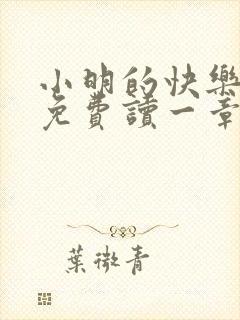 小明的快樂
免費讀一章
葉微青